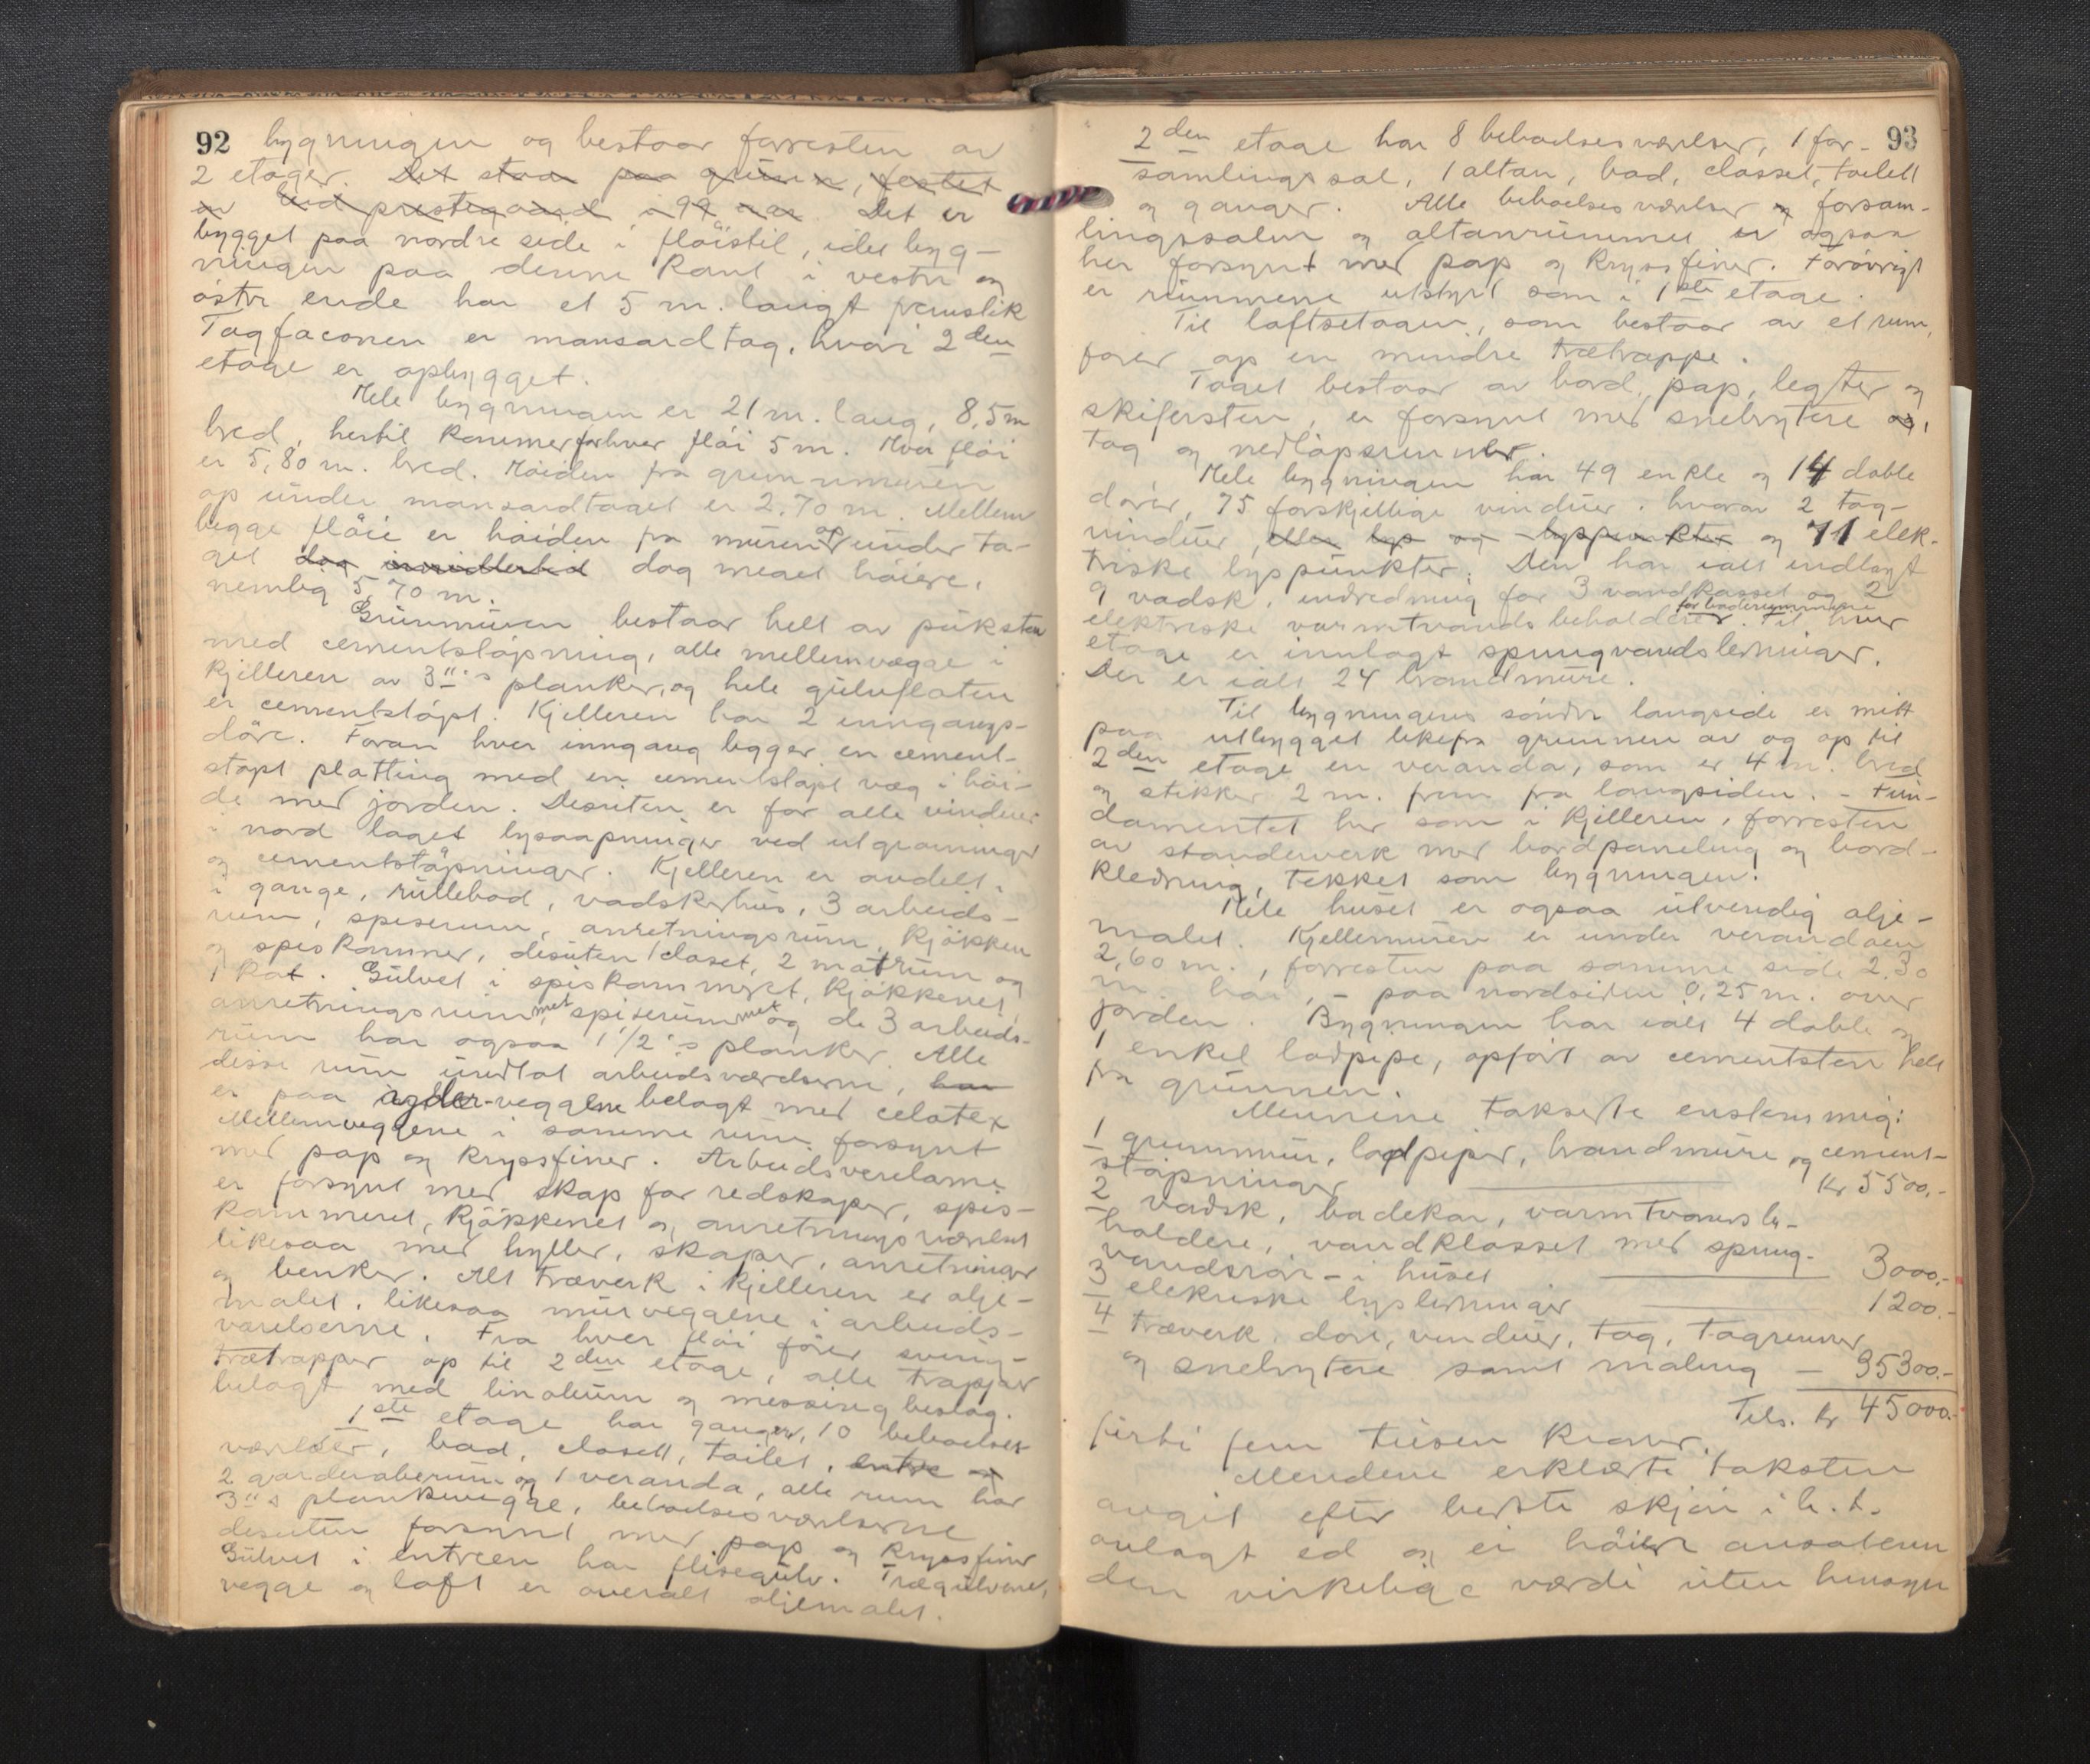 92 bygningen og bestaar forresten av
2 etager. Det staar paa grunn, festet
av Eid prestegaard i 99 aar. Det er
bygget paa nordre side i fløistil, idet byg-
ningen paa denne kant i vestre og
østre ende har et 5 m. langt fremstik
Tagfaconen er mansardtag, hvori 2den
etage er opbygget.
Hele bygningen er 21 m. lang, 8,5 m
bred, hertil kommer for hver fløi 5 m. Hver fløi
er 5,80 m. bred. Høiden fra grunnmuren
op under mansardtaget er 2,70 m. Mellem
begge fløie er høiden fra muren op under ta-
get dog imidlertid dog meget høiere,
nemlig 5,70 m.
Grunmuren bestaar helt av puksten
med cementstøpning, alle mellemvegge i
kjelleren av 3"'s planker, og hele gulvflaten
er cementstøpt. Kjelleren har 2 inngangs-
døre. Foran hver inngang ligger en cement-
støpt platting med en cementstøpt væg i høi-
de med jorden. Desuten er for alle vinduer
i nord laget lysaapninger ved utgravninger
og cementstøpninger. Kjelleren er avdelt
i gange, rullebod, vadskerhus, 3 arbeids-
rum, spiserum, anretningsrum, kjøkken
og spiskammer, desuten 1 closet, 2 matrum og
1 kot. Gulvet i spiskammret, kjøkkenet,
anretningsrummet, spiserummet og de 3 arbeids-
rum har ogsaa 1 1/2"s planker. Alle
disse rum undtat arbeidsværelserne, har
er paa ydder-veggene belagt med celotex
Mellemveggene i samme rum forsynt
med pap og kryssfiner. Arbeidsverelserne
er forsynt med skap for redskaper, spis-
kammeret, kjøkkenet og anretningsværelset
likesaa med hyller, skaper, anretninger
og benker. Alt træverk i kjelleren er olje-
malet, likesaa murveggene i arbeids-
værelserne. Fra hver fløi fører sving-
trætrapper op til 2den etage, alle trapper
belagt med linoleum og messingbeslag.
1ste etage har ganger, 10 beboelses
værelser, bad, closett, toilet, entre og
2 garderoberum og 1 veranda, alle rum har
3"s plankevegge, beboelsesværelserne
desuten forsynt med pap og kryssfiner
Gulvet i entreen har flisegulv. Trægulvene,
vegge og loft er overalt oljemalet.
93
2den etage har 8 beboelsesværelser, 1 for-
samlingssal, 1 altan, bad, closset, toilett
og ganger. Alle beboelsesværelser og forsam-
lingssalen og altanrummet er ogsaa
her forsynt med pap og kryssfiner. Forøvrigt
er rummene utstyrt som i 1ste etage.
Til loftsetagen, som bestaar av et rum,
fører op en mindre trætrappe.
Taget bestaar av bord, pap, legter og
skifersten, er forsynt med snebrytere og,
tag og nedløpsrenner.
Hele bygningen har 49 enkle og 14 doble
dører, 75 forskjellige vinduer, hvorav 2 tag-
vinduer, eller lys og lyspunkter og 71 elek-
triske lyspunkter. Den har ialt indlagt
9 vadsk, indredning for 3 vandklosset og 2
elektriske varmtvandsbeholdere for baderummene. Til hver
etage er innlagt springvandsledninger.
Der er ialt 24 brandmure.
Til bygningens søndre langside er mitt
paa utbygget likefra grunnen av og op til
2den etage en veranda, som er 4 m. bred
og stikker 2 m. frem fra langsiden. - Fun-
damentet her som i kjelleren, forresten
av standerverk med bordpaneling og bord-
kledning, tekket som bygningen.
Hele huset er ogsaa utvendig olje-
malet. Kjellermuren er under verandaen
2,60 m., forresten paa samme side 2,30
m. høi, - paa nordsiden 0,25 m. over
jorden. Bygningen har ialt 4 doble og
1 enkel lodpipe, opført av cementsten helt
fra grunnen.
Mennene takserte enstemmig:
1 grunnmur, lodpiper, brandmure og cement-
støpninger kr 5500,-
2 vadsk, badekar, varmtvannsbe-
holdere, vandklosset med spring-
vandsrør - i huset 3000,-
3 elektriske lysledninger 1200.-
4 træverk, døre, vinduer, tag, tagrenner
og snebrytere samt maling - 35300.-
Tils. kr 45000.-
førti fem tusen kroner.
Mendene erklærte taksten
avgit efter bedste skjøn i h. t.
avlagt ed og ei høiere ansat enn
den virkelige værdi uten hensyn